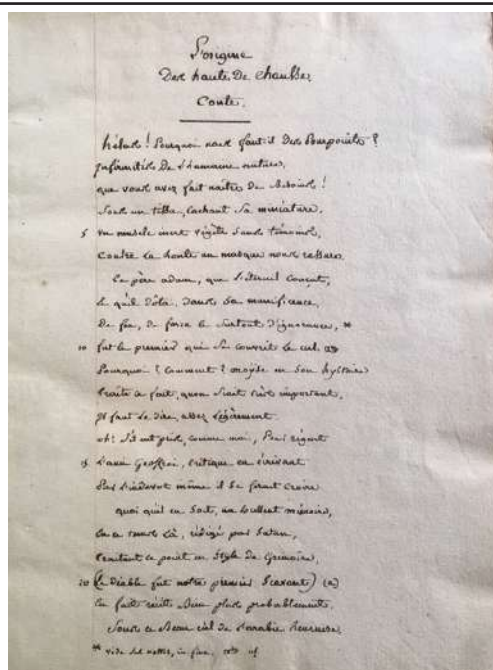 L'origine
Des hauts De chausses
Conte.
hélas ! Pourquoi nous faut il Des Pourpoints ?
Infirmités De L'humaine nature,
que vous avez fait naître de Besoins !
Sous un tissu, cachant sa miniature,
5 un muscle inert végète sans témoins,
Contre La honte un masque nous rassure.
Le père adam, que L'éternel Concut,
Et qu'il Dôta, Dans sa munificence,
De feu, de force et surtout D'ignorance, *
10 fut le premier qui se couvrit Le cul.
Pourquoi ? Comment ? moyse en son hystoire
traite ce fait, quon Sait très important,
Il faut Le dire, assez Légèrement.
oh! S'il eut pris, comme moi, Pour régent
15 L'ami Geoffroi, critique en écrivant
Des même il se ferait Croire
quoi qu'il en Soit, un excellent mémoire,
En ce tems Là, rédigé par Satan,
traitant ce point en Style De Grimoire,
20 (Le Diable fut notre premier Scavant) (a)
En fait récit Bien plus probablement.
Sous ce Beau ciel de L'arabie heureuse,
* vide les nottes, in fine,